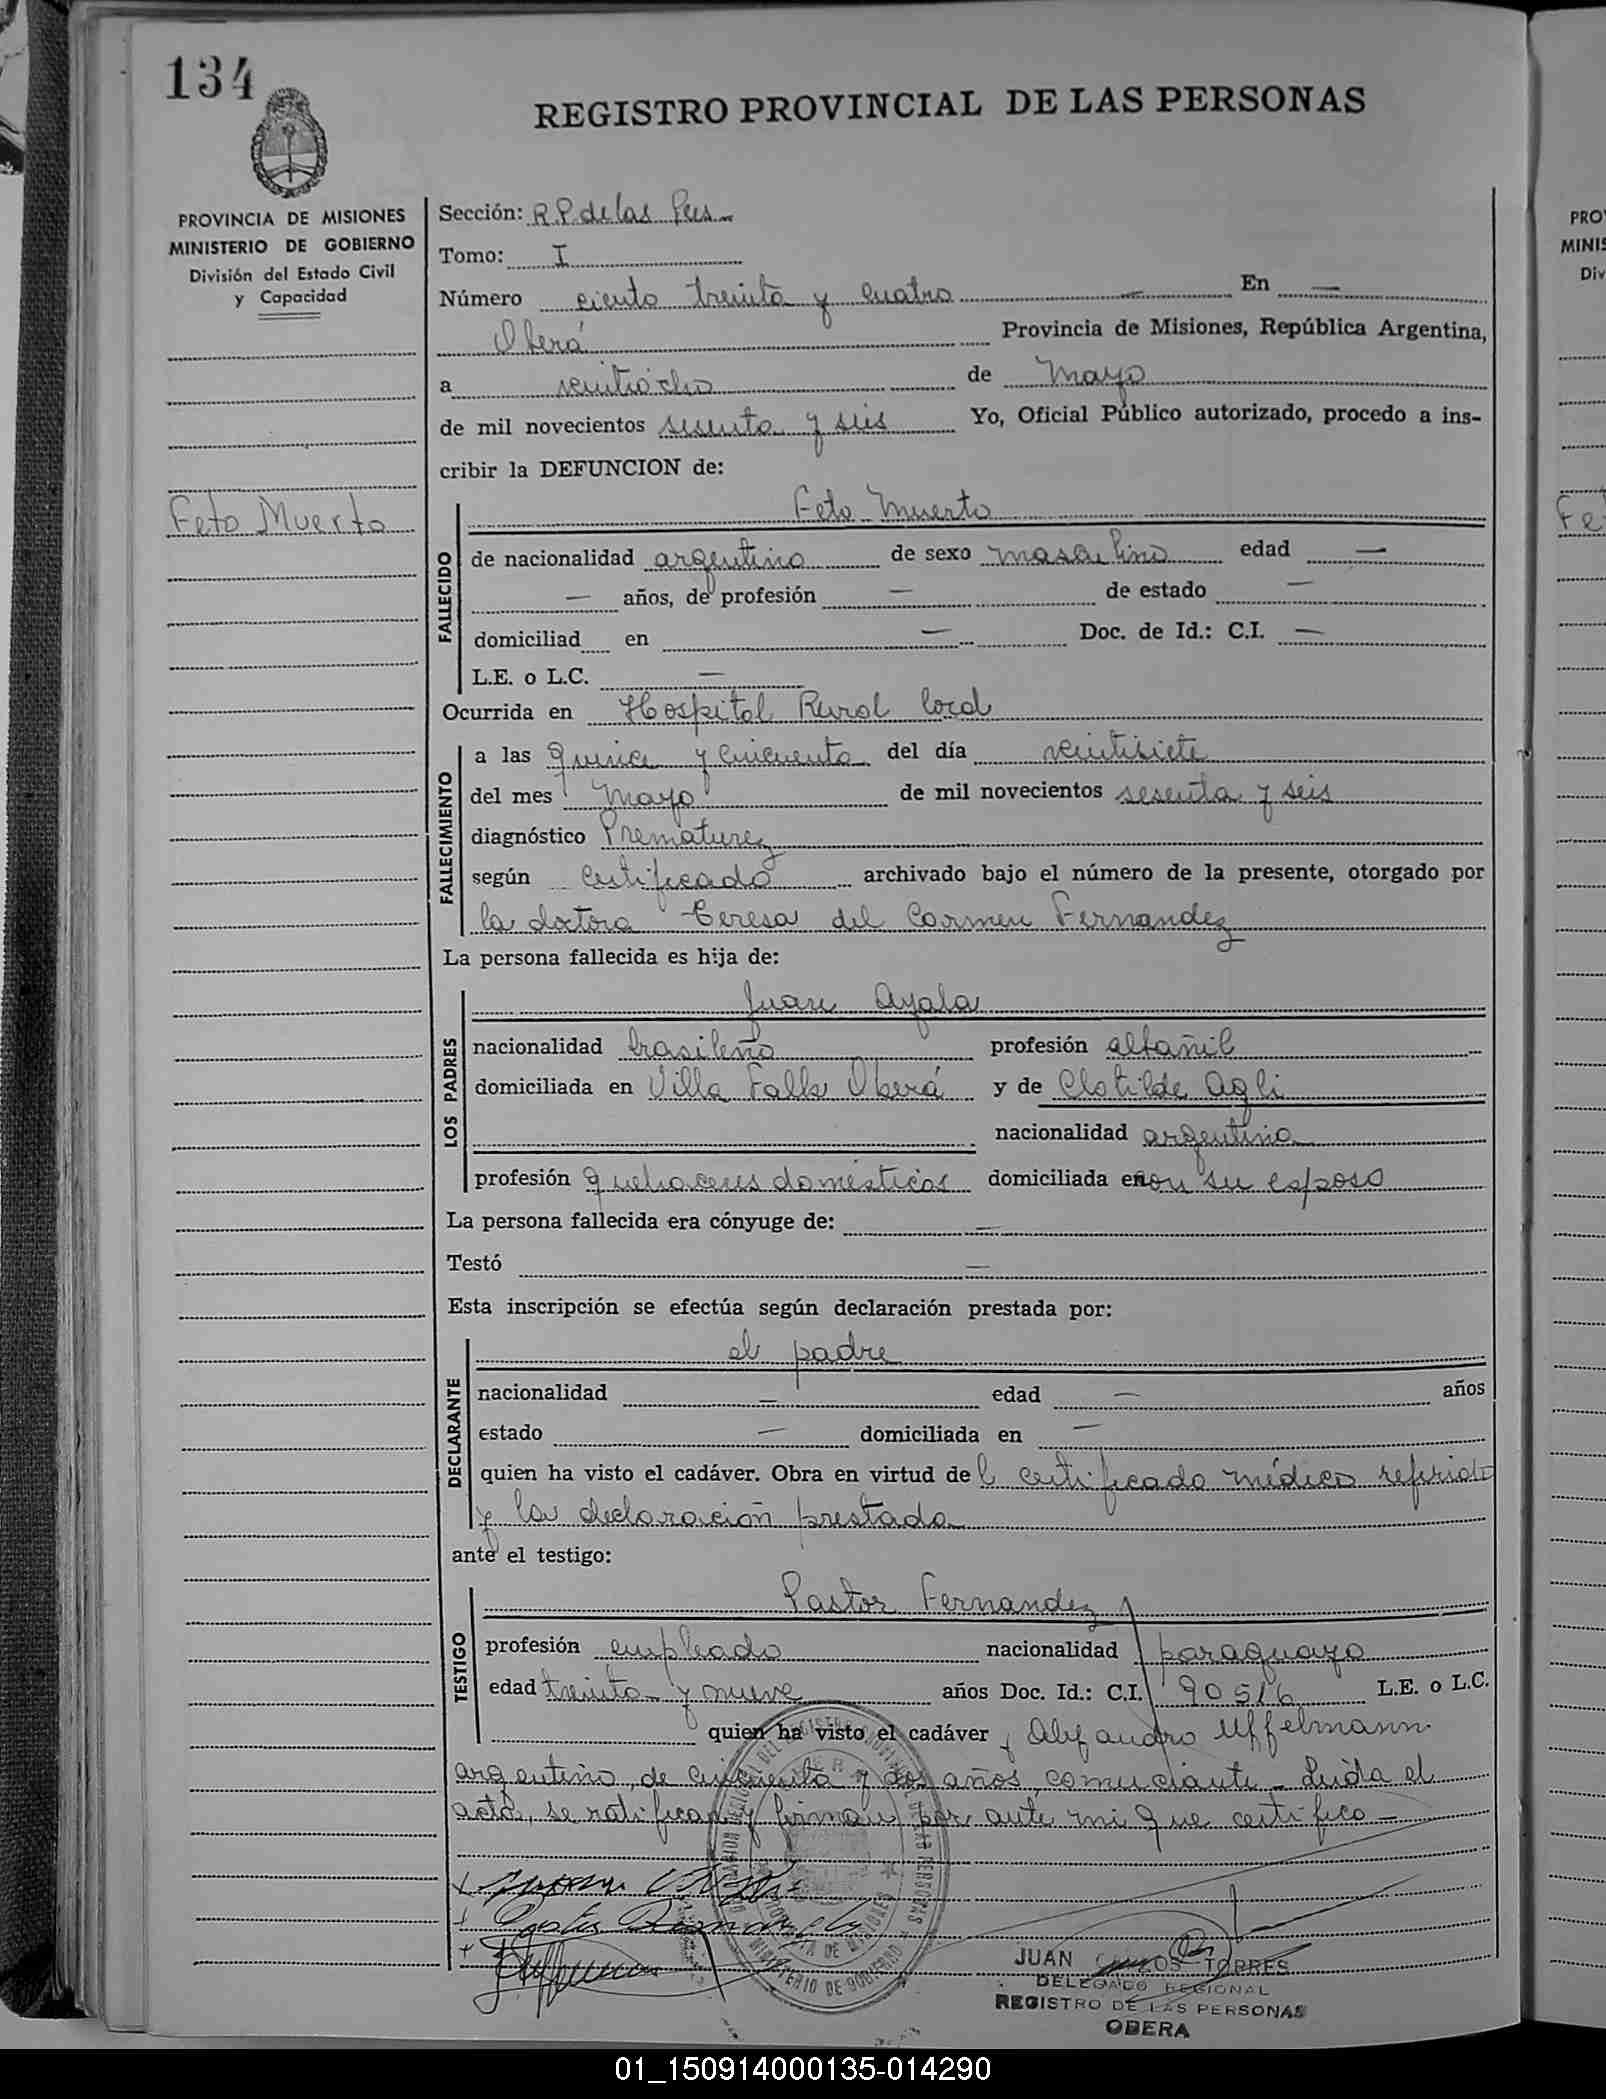 134
REGISTRO PROVINCIAL DE LAS PERSONAS
PROVINCIA DE MISIONES
MINISTERIO DE GOBIERNO
División del Estado Civil
y Capacidad
Feto Muerto
Sección: R.P. de las Pers
Tomo: I
Número ciento treinta y cuatro — En —
Oberá Provincia de Misiones, República Argentina,
a veintiocho de Mayo
de mil novecientos sesenta y seis Yo, Oficial Público autorizado, procedo a ins-
cribir la DEFUNCION de:
FALLECIDO
Feto Muerto
de nacionalidad argentino de sexo masculino edad —
— años, de profesión — de estado —
domiciliad en — Doc. de Id.: C.I. —
L.E. o L.C. —
Ocurrida en Hospital Rural local
FALLECIMIENTO
a las quince y cincuenta del día veintisiete
del mes Mayo de mil novecientos sesenta y seis
diagnóstico Prematurez
según certificado archivado bajo el número de la presente, otorgado por
la doctora Teresa del Carmen Fernandez
La persona fallecida es hija de:
LOS PADRES
Juan Ayala
nacionalidad brasileño profesión albañil
domiciliada en Villa Falk Oberá y de Clotilde Agli
nacionalidad argentina
profesión quehaceres domésticos domiciliada en con su esposo
La persona fallecida era cónyuge de: —
Testó —
Esta inscripción se efectúa según declaración prestada por:
DECLARANTE
el padre
nacionalidad — edad — años
estado — domiciliada en —
quien ha visto el cadáver. Obra en virtud del certificado médico referido
y la declaración prestada
ante el testigo:
TESTIGO
Pastor Fernandez
profesión empleado nacionalidad paraguayo
edad treinta y nueve años Doc. Id.: C.I. 90516 L.E. o L.C.
quien ha visto el cadáver y Alejandro Uffelmann
argentino, de cincuenta y dos años, comerciante - Leída el
acta, se ratifican y firman por ante mi que certifico —
JUAN CARLOS TORRES
DELEGADO REGIONAL
REGISTRO DE LAS PERSONAS
OBERA
PROVINCIA DE MISIONES
MINISTERIO DE GOBIERNO
PRO
MINIS
Div
Fe
01_150914000135-014290